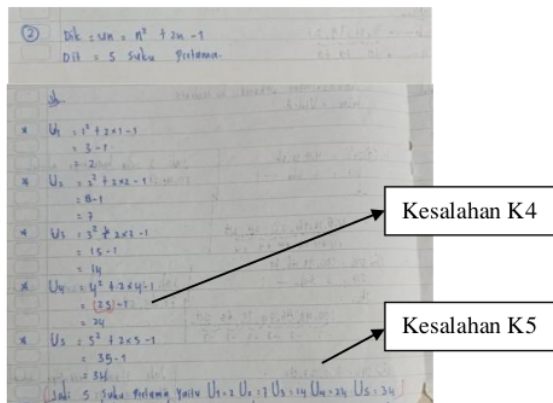 ② Dik = Un = n² + 2n - 1
Dit = 5 Suku Pertama.
Jb.
* U₁ = 1² + 2x1-1
= 3-1
= 2
* U₂ = 2² + 2x2-1
= 8-1
= 7
* U₃ = 3² + 2x3-1
= 15-1
= 14
* U₄ = 4² + 2x4-1
= (25)-1
= 24
* U₅ = 5² + 2x5-1
= 35-1
= 34
(Jadi 5 Suku Pertama yaitu U₁=2 U₂=7 U₃=14 U₄=24 U₅=34)
Kesalahan K4
Kesalahan K5